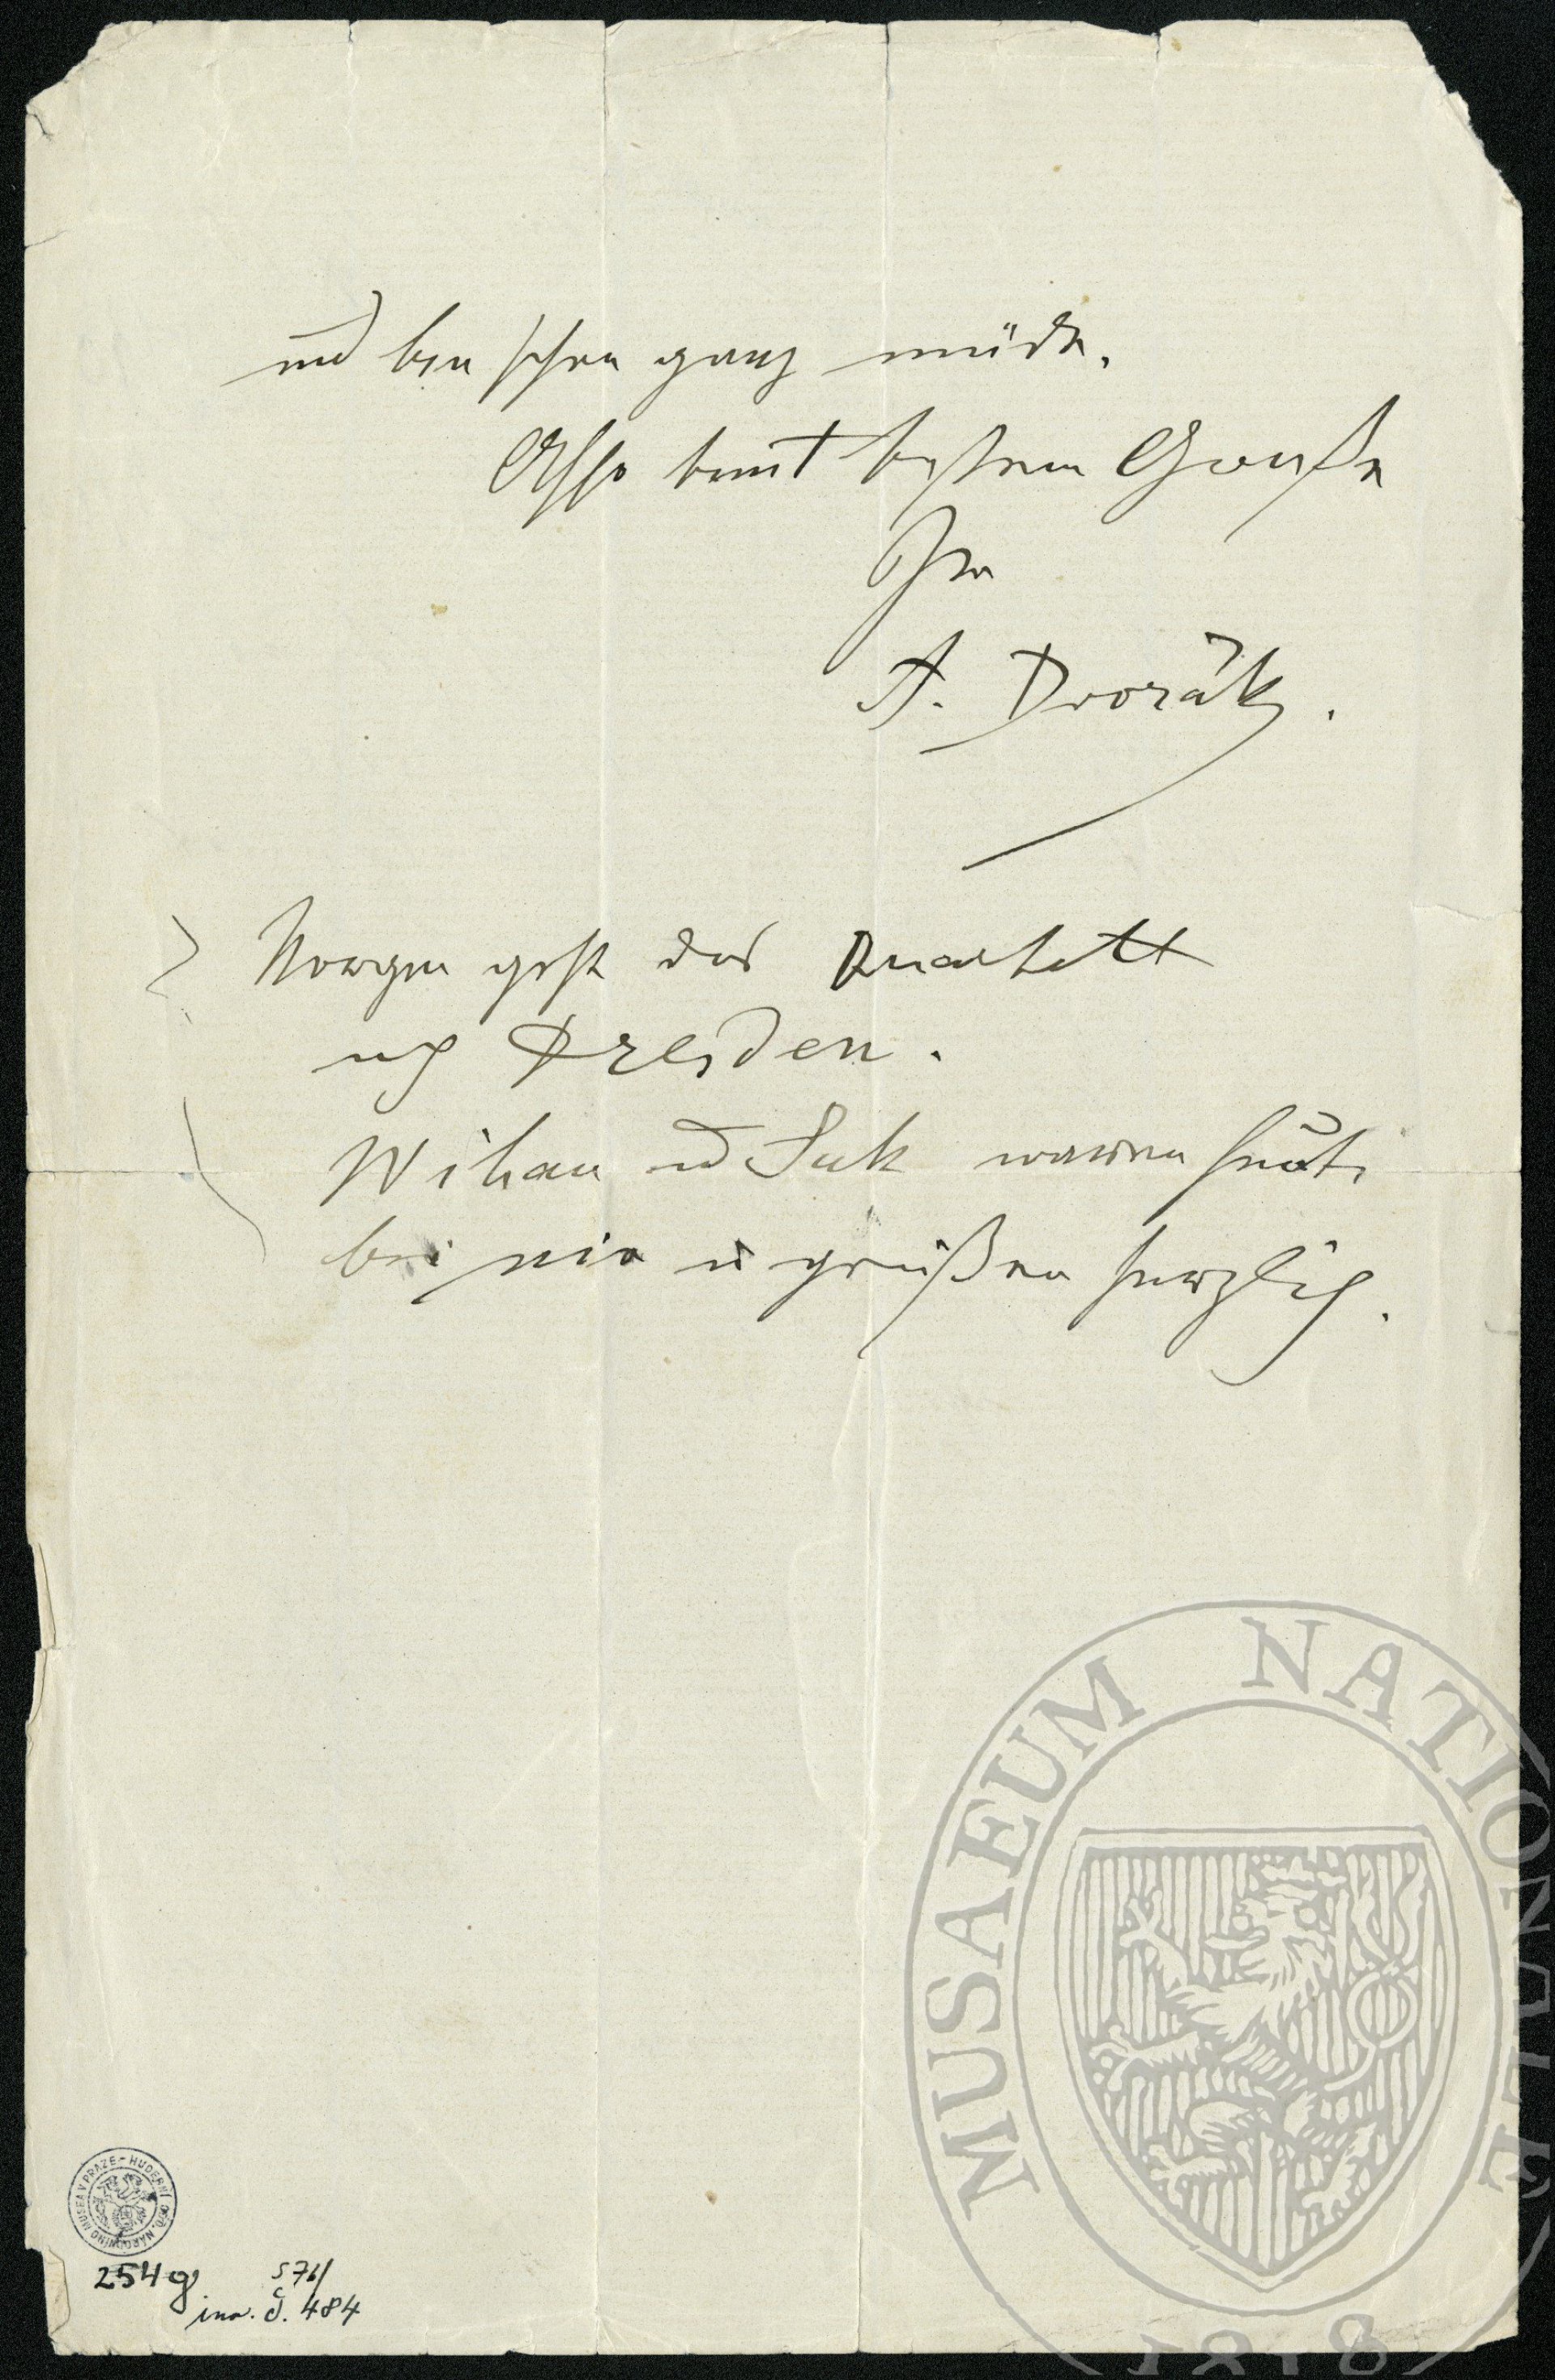 und bin schon ganz müde.
Also mit bestem Gruße
Ihr
A. Dvořák.
Morgen geht das Quartett
nach Dresden.
Wihan und Suk waren heute
bei mir u grüßen herzlich.
MUSAEUM NATIONALE
1818
254 g 571/
inv. č. 484